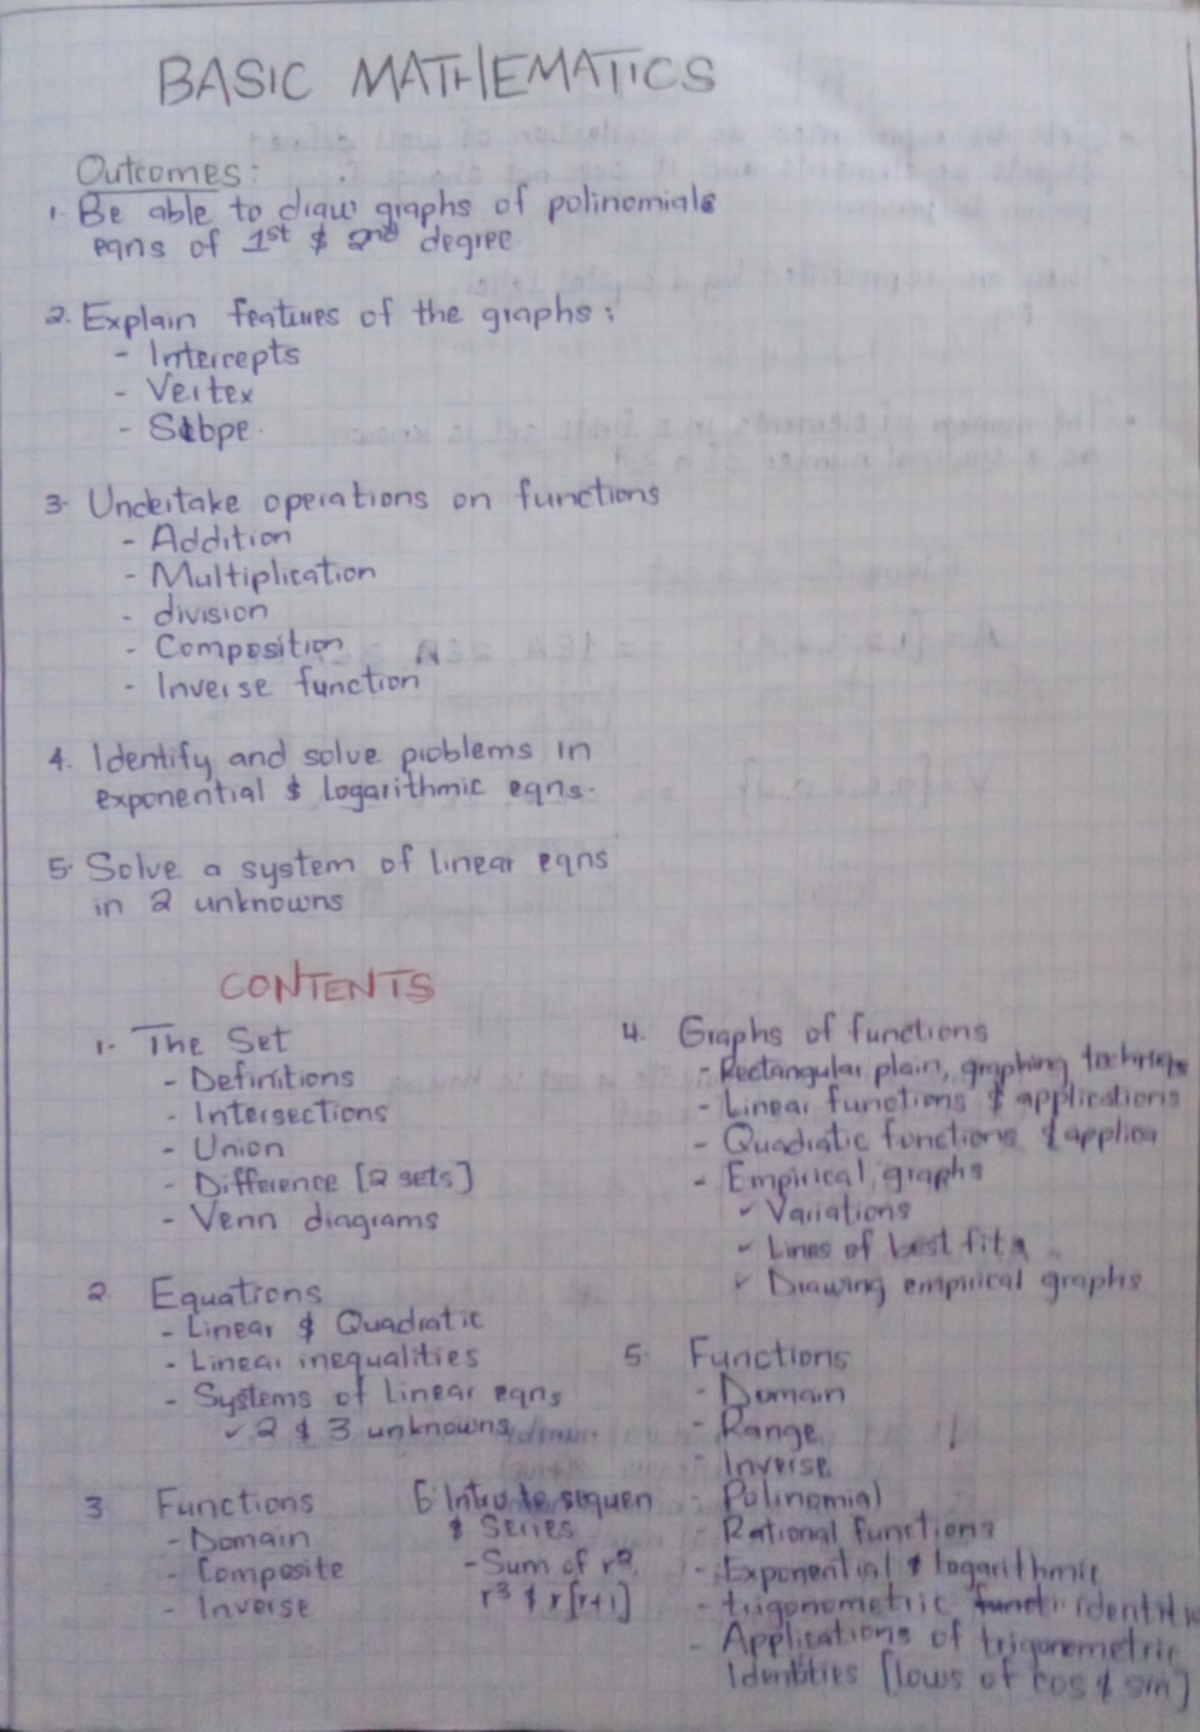 BASIC MATHEMATICS
Outcomes:
1. Be able to draw graphs of polinomials
eqns of 1st & 2nd degree.
2. Explain features of the graphs:
- Intercepts
- Vertex
- Slope.
3. Undertake operations on functions
- Addition
- Multiplication
- division
- Composition
- Inverse function
4. Identify and solve problems in
exponential & logarithmic eqns.
5. Solve a system of linear eqns
in 2 unknowns
CONTENTS
1. The Set
- Definitions
- Intersections
- Union
- Difference [2 sets]
- Venn diagrams
2. Equations
- Linear & Quadratic
- Linear inequalities
- Systems of linear eqns
✓ 2 & 3 unknowns
3. Functions
- Domain
- Composite
- Inverse
4. Graphs of functions
- Rectangular plain, graphing
- Linear functions & applications
- Quadratic functions & applica
- Empirical graphs
✓ Variations
✓ Lines of best fit
✓ Drawing empirical graphs
5. Functions
- Domain
- Range
- Inverse
- Polinomial
- Rational functions
- Exponential & logarithmic
- trigonometric funct. identitie
- Applications of trigonometric
Identities [lows of cos & sin]
6. Intro to sequen
& Series
- Sum of r²,
r³ & r[r+1]